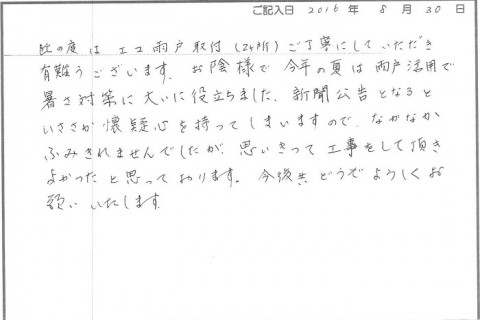 ご記入日 2016年 8月 30日
此の度は エコ雨戸取付(2ヶ所)ご丁寧にしていただき
有難うございます。お陰様で 今年の夏は雨戸活用で
暑さ対策に大いに役立ちました。新聞公告となると
いささか懐疑心を持ってしまいますので、なかなか
ふみきれませんでしたが 思いきって工事をして頂き
よかったと思っております。今後共 どうぞよろしくお
願い いたします。